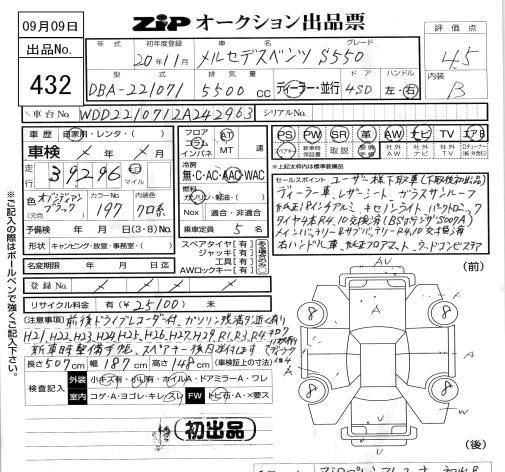 09月09日
ZIP オークション出品票
出品No.
432
年式
初年度登録
車名
グレード
20年11月
メルセデスベンツ S550
型式
排気量
ドア
ハンドル
DBA-221071
5500 CC
ディーラー・並行
4SD
左・右
評価点
4.5
内装
B
車台No.
WDD2210712A242963
シリアルNo.
車歴
自家用・レンタ・( )
車検 年 月
走行
39296
マイル
色
(元色)
オブシディアン
ブラック
カラーNo.
197
クロ系
予備検 年 月 日 (3・8) No.
形状 キャンピング・放室・事務室・( )
名変期限 年 月 日迄
登録No.
リサイクル料金 有(¥25100) 未
フロア
コラム
インパネ
AT
MT 速
冷房
無・C・AC・AAC・WAC
燃料
ガソリン・軽油・( )
Nox 適合・非適合
乗車定員 5 名
スペアタイヤ【有】
ジャッキ【有】
工具【有】
AWロックキー【有】
PS PW SR 革 AW ナビ TV エアB
記録簿
取説
※上記太枠内は標準装備品
セールスポイント ユーザー様下取車(下取後初出品)
ディーラー車 レザーシート ガラスサンルーフ
純正19インチアルミ キセノンライト バックトロニック
タイヤ4本R4.10交換済(BSポテンザS007A)
メインバッテリー&サブバッテリーR4.10交換済
右ハンドル車 純正フロアマット ウッドコンビステア
(注意事項) 前後ドライブレコーダー付、ガソリン残満タン近く有り
H21.H22.H23.H24.H25.H26.H27.H29.R1.R3.R4
新車時整備手帳、スペアキー後日送付します
長さ507cm 幅187cm 高さ148cm (車検証上の寸法)
検査記入
外装
小キズ有・小凹有・ホイルA・ドアミラーA・ワレ
室内
コゲ・A・ヨゴレ・キレ・スレ
FW
トビ石・A・×要ス
初出品
(前)
A
A
A
V
U
8
8
8
8
(後)
※ご記入の際はボールペンで強くご記入下さい。